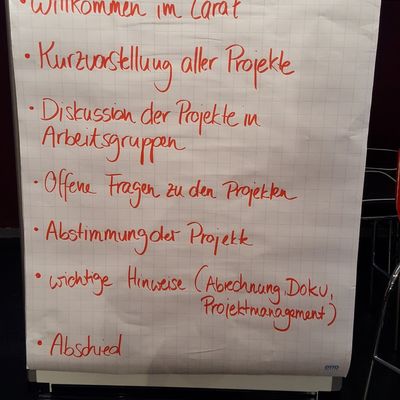 • Willkommen im Carat
• Kurzvorstellung aller Projekte
• Diskussion der Projekte in
Arbeitsgruppen
• Offene Fragen zu den Projekten
• Abstimmung der Projekte
• wichtige Hinweise (Abrechnung, Doku,
Projektmanagement)
• Abschied